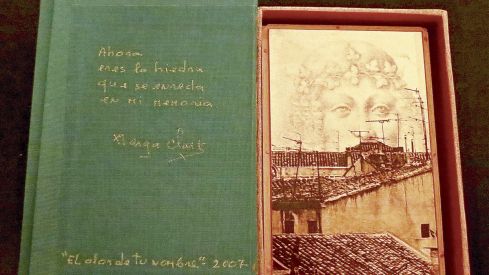 Ahora
eres la hiedra
que se enreda
en mi memoria
Marga Clark
"El olor de tu nombre" 2007